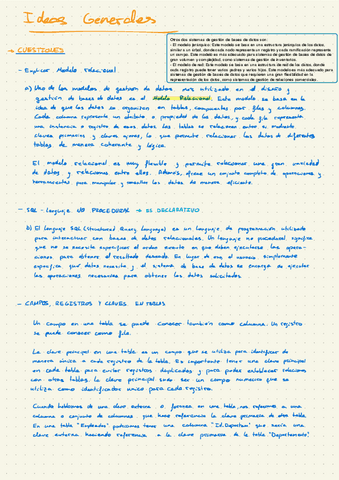 Ideas Generales
Otros dos sistemas de gestión de bases de datos son:
- El modelo jerárquico: Este modelo se basa en una estructura jerárquica de los datos,
similar a un árbol, donde cada nodo representa un registro y cada ramificación representa
un campo. Este modelo es más adecuado para sistemas de gestión de bases de datos de
gran volumen y complejidad, como sistemas de gestión de inventarios.
- El modelo de red: Este modelo se basa en una estructura de red de los datos, donde
cada registro puede tener varios padres y varios hijos. Este modelo es más adecuado para
sistemas de gestión de bases de datos que requieren una gran flexibilidad en la
representación de los datos, como sistemas de gestión de relaciones comerciales.
→ CUESTIONES
- Explicar Modelo relacional
a) Uno de los modelos de gestión de datos más utilizado en el diseño y
gestión de bases de datos es el Modelo Relacional. Este modelo se basa en la
idea de que los datos se organizan en tablas, compuestas por filas y columnas.
Cada columna representa un atributo o propiedad de los datos, y cada fila representa
una instancia o registro de esos datos. Las tablas se relacionan entre sí mediante
claves primarias y claves ajenas, lo que permite relacionar los datos de diferentes
tablas de manera coherente y lógica.
El modelo relacional es muy flexible y permite relacionar una gran variedad
de datos y relaciones entre ellos. Además, ofrece un conjunto completo de operaciones y
herramientas para manipular y consultar los datos de manera eficiente.
- SQL - lenguaje NO PROCEDURAL → ES DECLARATIVO
b) El lenguaje SQL (Structured Query Language) es un lenguaje de programación utilizado
para interactuar con bases de datos relacionales. Un lenguaje no procedural significa
que no se necesita especificar el orden exacto en que deben ejecutarse las opera-
ciones para obtener el resultado deseado. En lugar de eso el usuario simplemente
especifica qué datos necesita y el sistema de base de datos se encarga de ejecutar
las operaciones necesarias para obtener los datos solicitados.
- CAMPOS, REGISTROS Y CLAVES EN TABLAS
Un campo en una tabla se puede conocer también como columna. Un registro
se puede conocer como fila.
La clave principal en una tabla es un campo que se utiliza para identificar de
manera única a cada registro de la tabla. Es importante tener una clave principal
en cada tabla para evitar registros duplicados y para poder establecer relaciones
con otras tablas. La clave principal suele ser un campo numérico que se
utiliza como identificador único para cada registro.
Cuando hablamos de una clave externa o foránea en una tabla, nos referimos a una
columna o conjunto de columnas que hace referencia la clave primaria de otra tabla.
En una tabla "Empleados" podríamos tener una columna "Id.Departam" que sería una
clave externa haciendo referencia a la clave primaria de la tabla "Departamento".